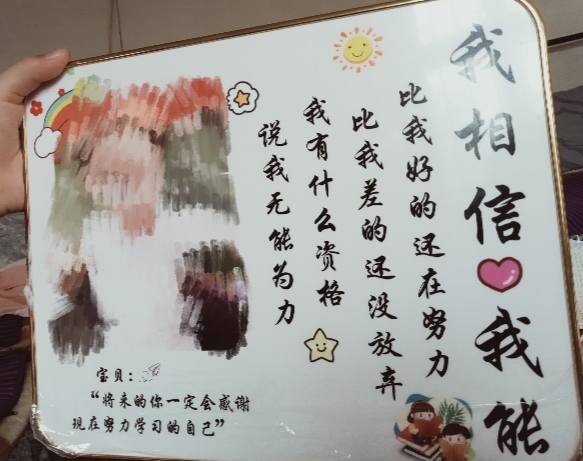 我相信我能
比我好的还在努力
比我差的还没放弃
我有什么资格
说我无能为力
宝贝：
“将来的你一定会感谢
现在努力学习的自己”